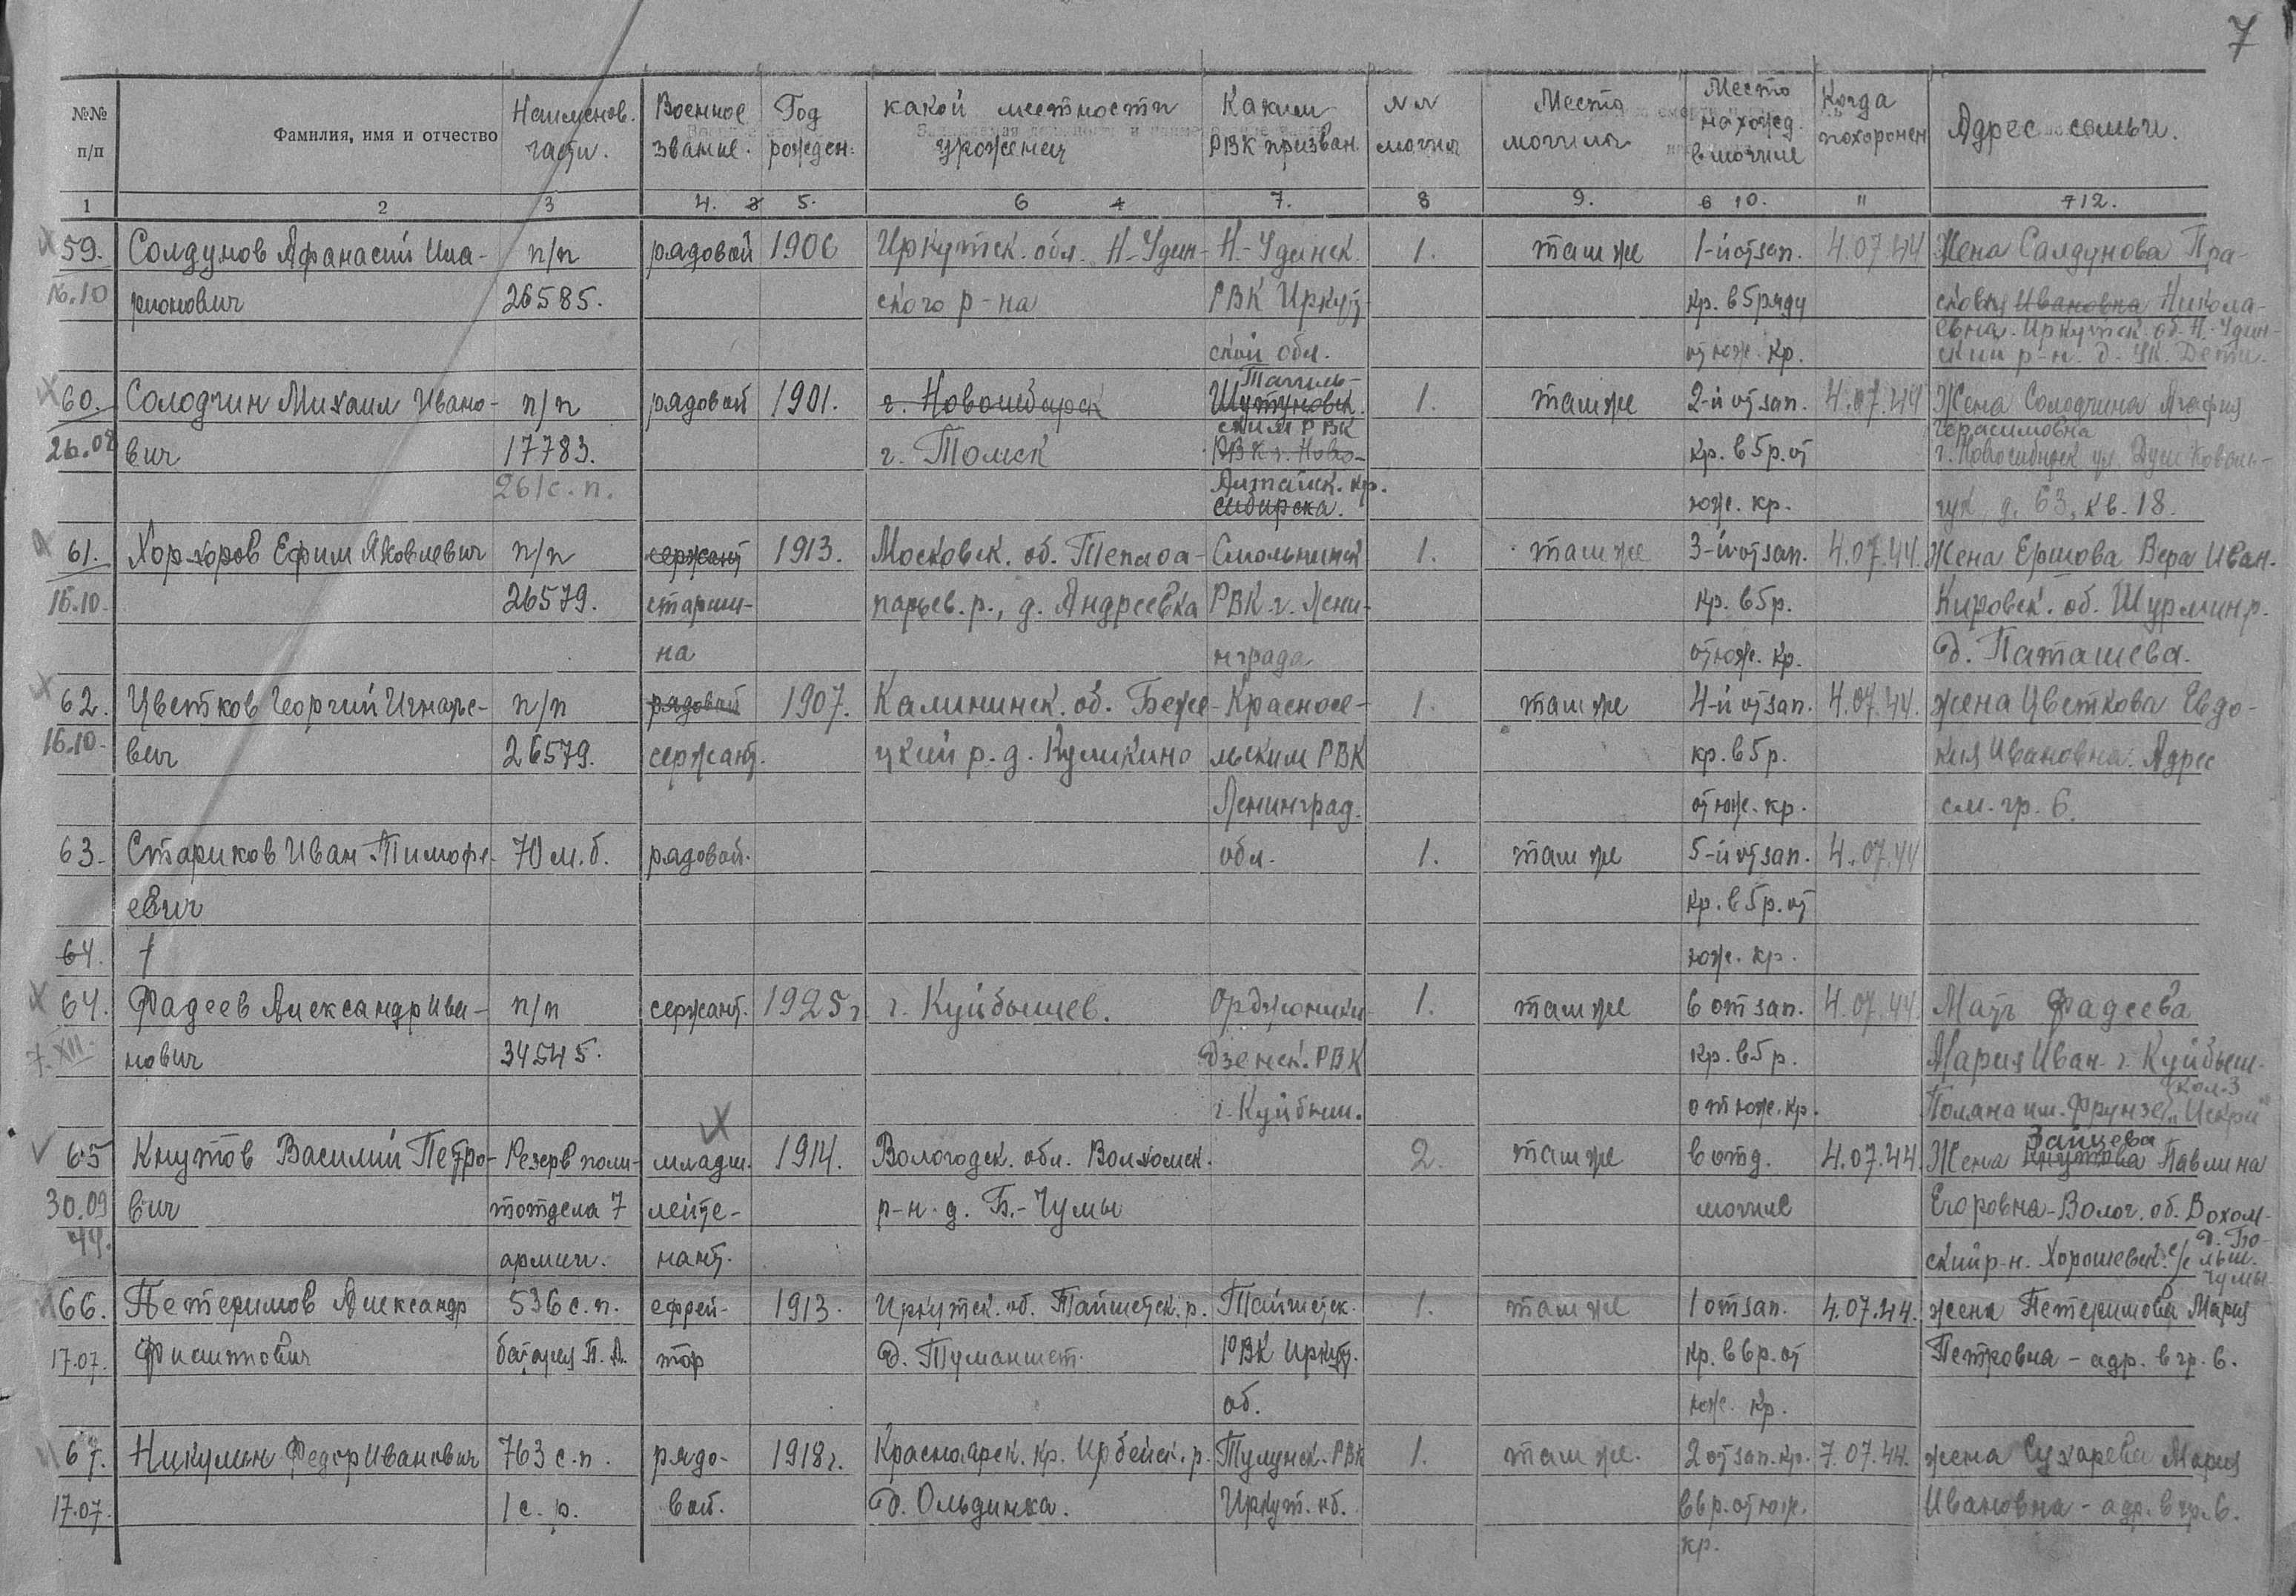 7
№№ п/п | Фамилия, имя и отчество | Наименов. части. | Военное звание. | Год рожден. | какой местности уроженец | Каким РВК призван. | №№ могил | Место могилы | Место нахожд. в могиле | Когда похоронен | Адрес семьи.
1 | 2 | 3 | 4. 3 | 5. | 6 4 | 7. | 8 | 9. | 6 10. | 11 | 7 12.
59. | Солдунов Афанасий Ила- | п/п | рядовой | 1906 | Иркутск. обл. Н-Удин- | Н-Удинск. | 1. | там же | 1-й от зап. | 4.07.44 | Жена Салдунова Пра-
16.10 | рионович | 26585. | ского р-на | РВК Иркут | кр. в 5 ряду | сковья Ивановна Никола-
евна. Иркутск. об. Н.-Удин-
ской обл. | от юж. кр. | ский р-н. д. Ук. Дети.
60. | Солодчин Михаил Ивано- | п/п | рядовой | 1901. | г. Новосибирск | | 1. | там же | 2-й от зап. | 4.07.44 | Жена Солодчина Агафия
ским РВК | Герасимовна
26.08 | вич | 17783. | г. Томск | РВК г. Ново- | кр. в 5 р. от | г. Новосибирск ул.
261 с.п. | Алтайск. кр.
сибирска. | юж. кр. | чук д. 63, кв. 18.
61. | Хорхоров Ефим Яковлевич | п/п | сержант | 1913. | Московск. об. | Смольнинск | 1. | там же | 3-й от зап. | 4.07.44. | Жена Ершова Вера Иван.
16.10. | 26579. | старши- | р., д. Андреевка | РВК г. Лени- | кр. в 5 р. | Кировск. об. Шурмин р.
на | нграда | от юж. кр. | д. Паташева.
62. | Цветков Георгий Игнать- | п/п | рядовой | 1907. | Калининск. об. Беже- | Красносе- | 1. | там же | 4-й от зап. | 4.07.44. | жена Цветкова Евдо-
16.10. | вич | 26579. | сержант. | цкий р. д. Куликино | льским РВК | кр. в 5 р. | кия Ивановна. Адрес
Ленинград. | от юж. кр. | см. гр. 6.
63. | Стариков Иван Тимофе- | 70 м.б. | рядовой. | обл. | 1. | там же | 5-й от зап. | 4.07.44
евич | кр. в 5 р. от
64. | юж. кр.
64. | Фадеев Александр Ива- | п/п | сержант. | 1925 г. | г. Куйбышев. | Орджоники- | 1. | там же | 6 от зап. | 4.07.44. | Мать Фадеева
7.XII. | нович | 34545. | дзенск. РВК | кр. в 5 р. | Мария Иван. г. Куйбыш.
кол-з
г. Куйбыш. | от юж. кр. | Поляна им. Фрунзе „Искра"
65 | Кнутов Василий Петро- | Резерв поли- | младш. | 1914. | Вологодск. обл. Волхомск. | 2. | там же | в отд. | 4.07.44 | Жена Кнутова Зайцева Павлина
30.09 | вич | тотдела 7 | лейте- | р-н. д. Б.-Чумы | могиле | Егоровна - Волог. об. Вохом-
44. | армии. | нант. | ский р-н. Хорошевск. с/с д. Больш. Чумы
66. | Петеримов Александр | 536 с.п. | ефрей- | 1913. | Иркутск. об. Тайшетск. р. | Тайшетск. | 1. | там же | 1 от зап. | 4.07.44. | жена Петеримова Мария
17.07. | Филиппович | батарея П.А. | тор | д. Туманшет. | РВК Иркут. | кр. в 6 р. от | Петровна - адр. в гр. 6.
об. | юж. кр.
67. | Никулин Федор Иванович | 763 с.п. | рядо- | 1918 г. | Красноярск. кр. Ирбейск. р. | Тулунск. РВК | 1. | там же. | 2 от зап. кр. | 7.07.44. | жена Сухарева Мария
17.07. | 1 с.р. | вой. | д. Ольдинка. | Иркут. об. | в 6 р. от юж. | Ивановна - адр. в гр. 6.
кр.